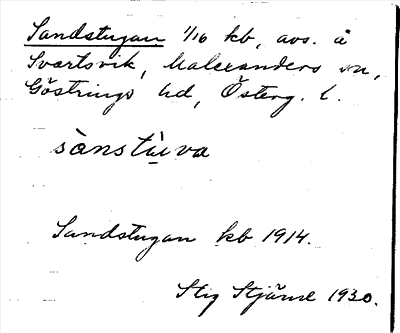 Sandstugan 1/16 kb, avs. å
Svartsvik, Malexanders sn,
Göstrings hd, Österg. l.
sànstùva
Sandstugan kb 1914.
Stig Stjärne 1930.